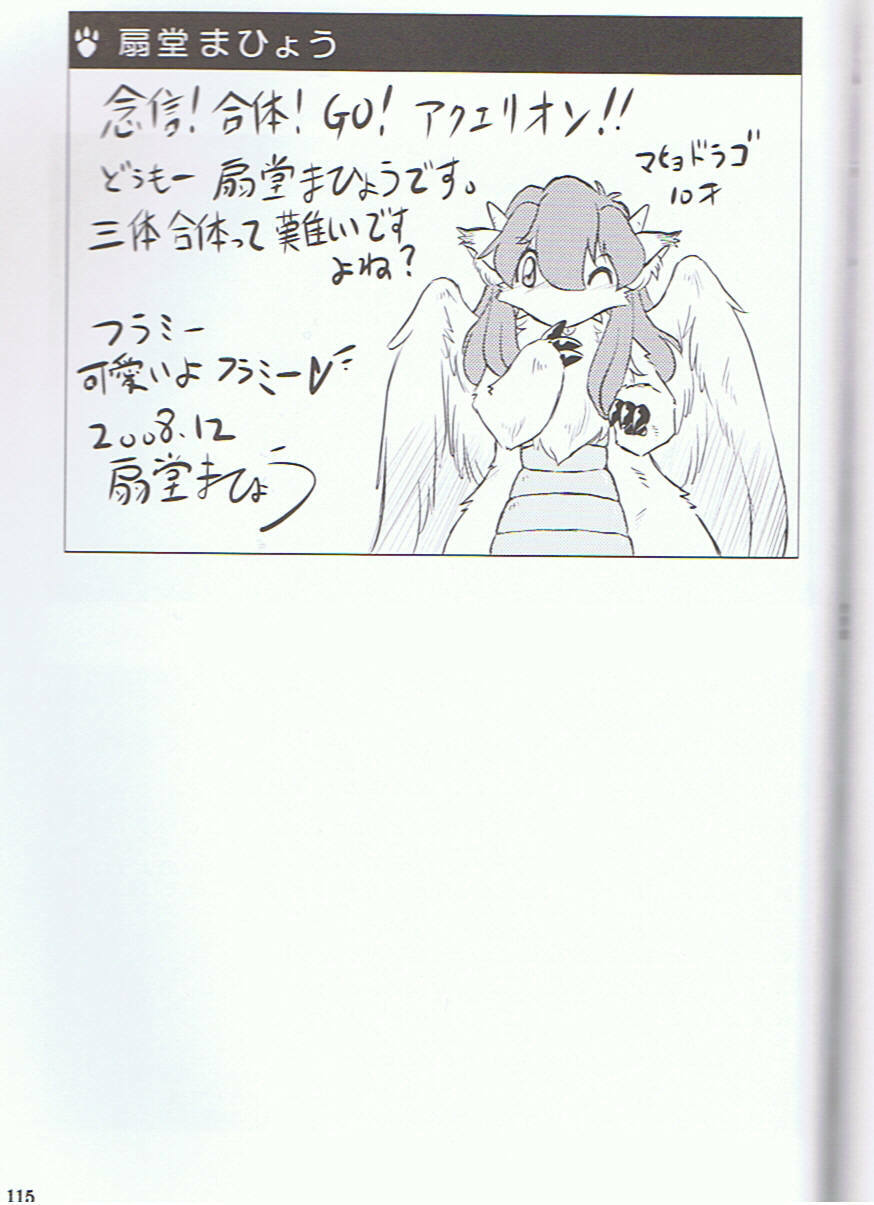 扇堂まひょう
念信！合体！GO！アクエリオン！！
どうもー 扇堂まひょうです。
三体合体って難しいです
よね？
マヒョドラゴ
10才
フラミー
可愛いよフラミー
2008.12
扇堂まひょう
115